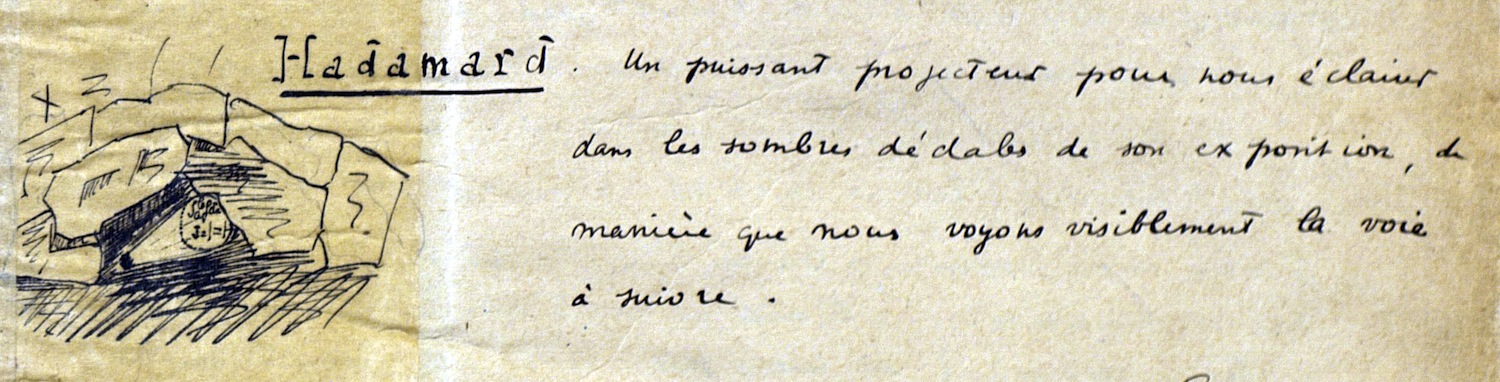 Hadamard. Un puissant projecteur pour nous éclairer
dans les sombres dédales de son exposition, de
manière que nous voyons visiblement la voie
à suivre.